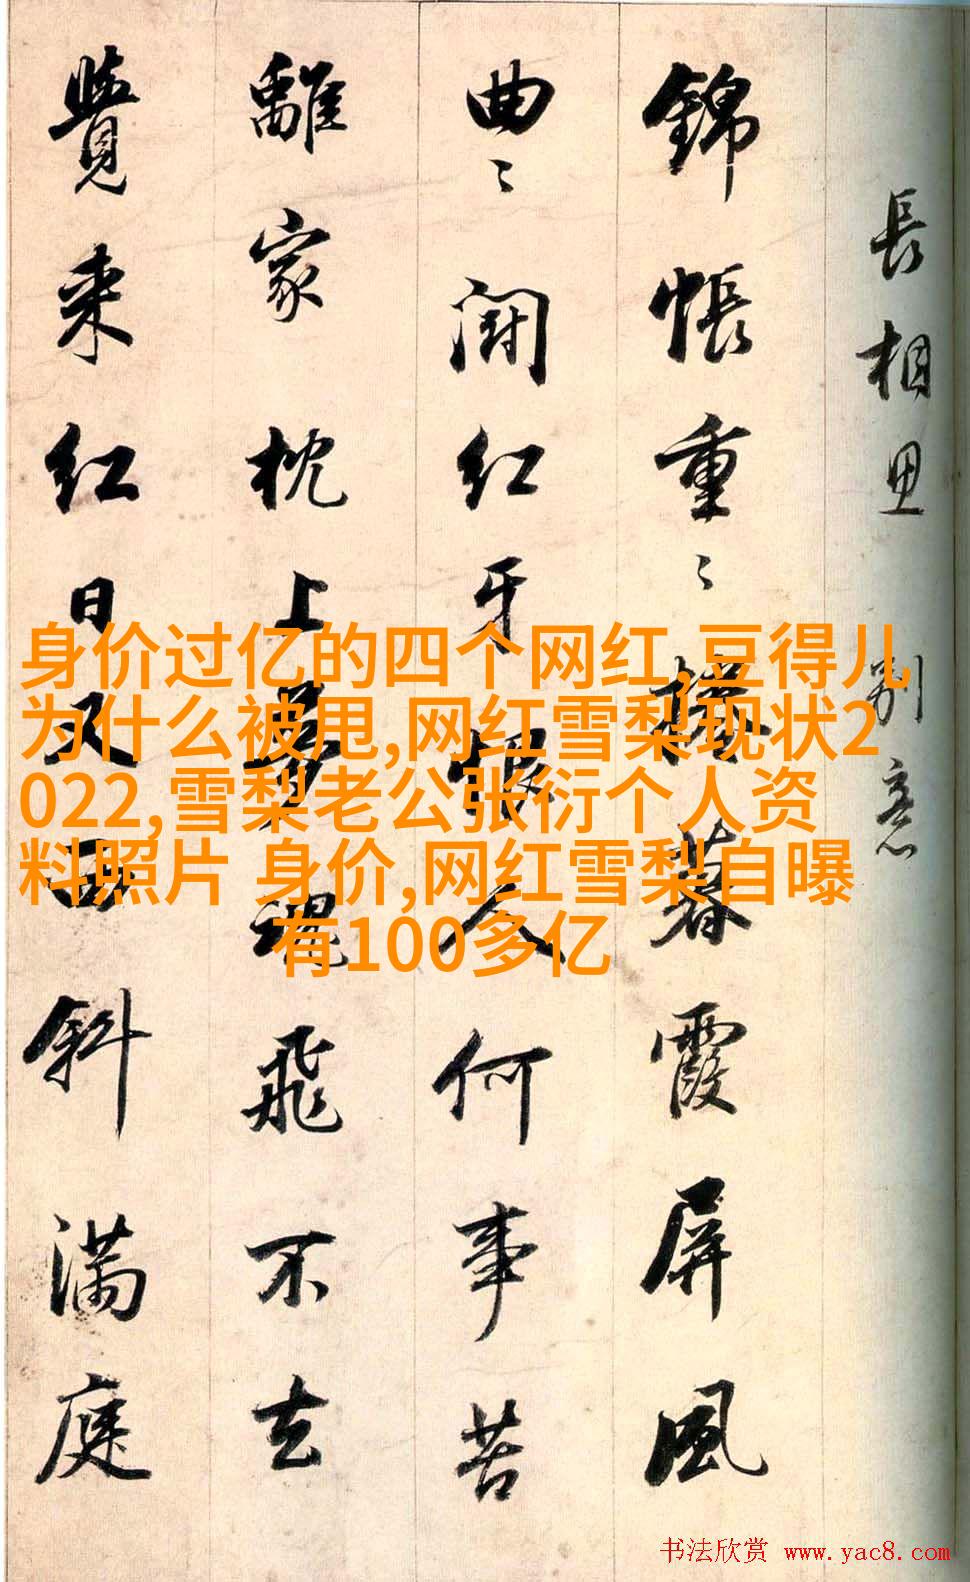 長相思 別意
錦帳重〻捲暮霞屏風
曲〻鬭紅牙恨人何事苦
離家枕上夢魂飛不去
覺來紅日又西斜滿庭
身价过亿的四个网红,豆得儿
为什么被甩,网红雪梨现状2
022,雪梨老公张衍个人资
料照片 身价,网红雪梨自曝
有100多亿
书法欣赏 www.yac8.com